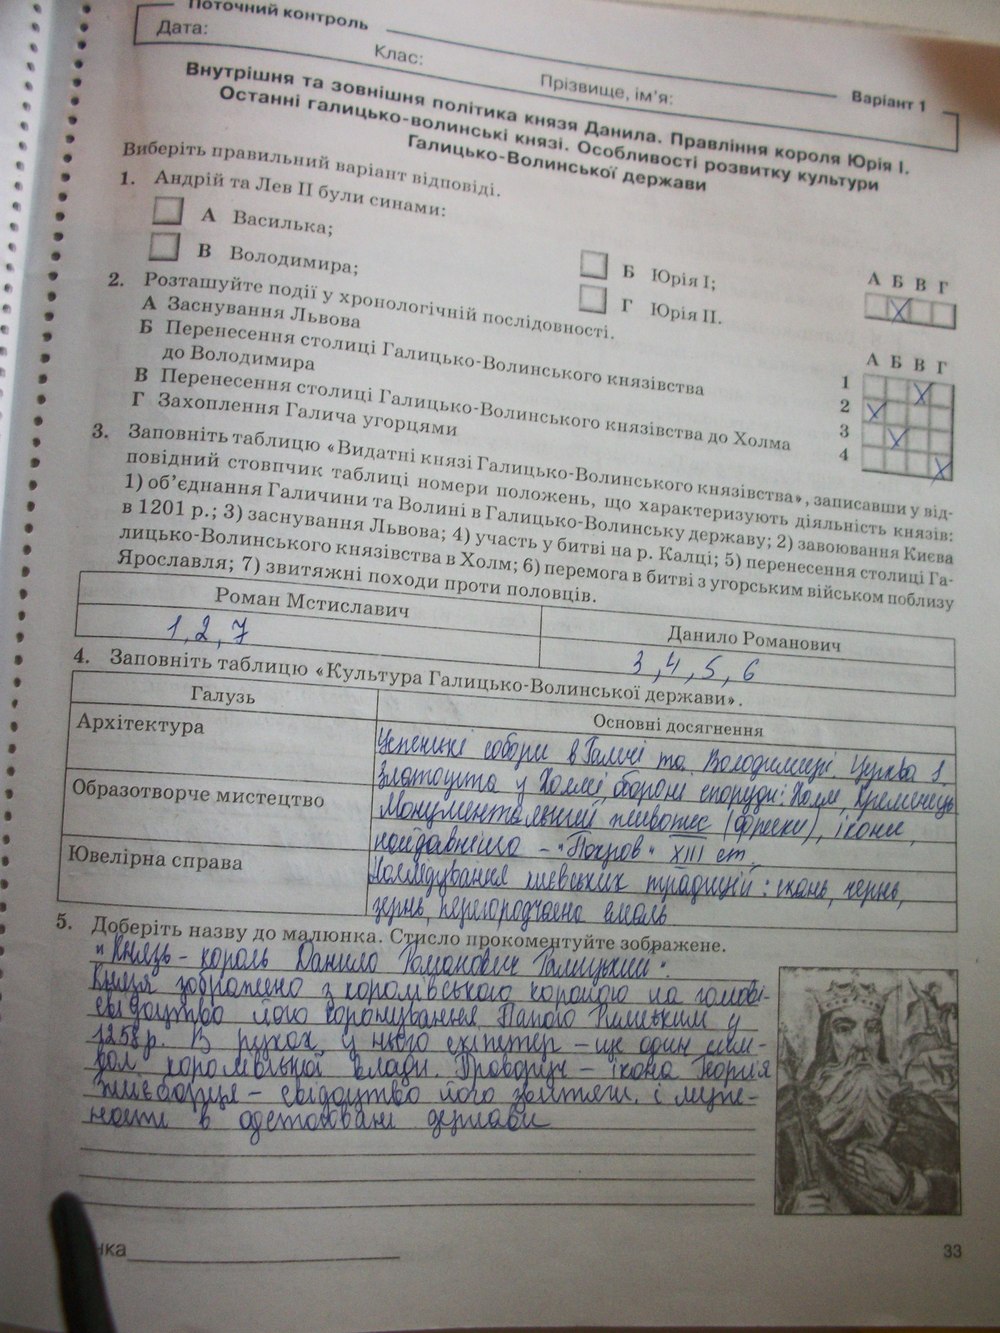 Поточний контроль
Дата:
Клас:
Прізвище, ім'я:
Варіант 1
Внутрішня та зовнішня політика князя Данила. Правління короля Юрія І.
Останні галицько-волинські князі. Особливості розвитку культури
Галицько-Волинської держави
Виберіть правильний варіант відповіді.
1. Андрій та Лев ІІ були синами:
А Василька;
Б Юрія І;
В Володимира;
Г Юрія ІІ.
А Б В Г
X
2. Розташуйте події у хронологічній послідовності.
А Заснування Львова
Б Перенесення столиці Галицько-Волинського князівства
до Володимира
В Перенесення столиці Галицько-Волинського князівства до Холма
Г Захоплення Галича угорцями
А Б В Г
1 X
2 X
3 X
4 X
3. Заповніть таблицю «Видатні князі Галицько-Волинського князівства», записавши у від-
повідний стовпчик таблиці номери положень, що характеризують діяльність князів:
1) об'єднання Галичини та Волині в Галицько-Волинську державу; 2) завоювання Києва
в 1201 р.; 3) заснування Львова; 4) участь у битві на р. Калці; 5) перенесення столиці Га-
лицько-Волинського князівства в Холм; 6) перемога в битві з угорським військом поблизу
Ярославля; 7) звитяжні походи проти половців.
Роман Мстиславич
Данило Романович
1, 2, 7
3, 4, 5, 6
4. Заповніть таблицю «Культура Галицько-Волинської держави».
Галузь
Основні досягнення
Архітектура
Успенські собори в Галичі та Володимирі. Церква І.
Златоуста у Холмі, оборонні споруди: Холм, Кременець
Образотворче мистецтво
Монументальний живопис (фрески), ікони,
найдавніша - "Покров" XIII ст.
Ювелірна справа
Наслідування київських традицій: скань, чернь,
зернь, перегородчаста емаль
5. Доберіть назву до малюнка. Стисло прокоментуйте зображене.
"Князь - король Данило Романович Галицький".
Князя зображено з королівською короною на голові-
свідоцтво його коронування Папою Римським у
1253р. В руках у нього скіпетер - ще один сим-
вол королівської влади. Праворуч - ікона Георгія
Змієборця - свідоцтво його звитяги і муж-
ності в
держави
нка
33